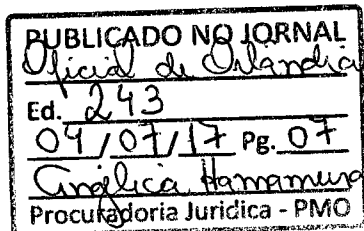 PUBLICADO NO JORNAL
Oficial de Orlandia
Ed. 243
04/07/17 Pg. 07
Angélica Hamamura
Procuradoria Juridica - PMO